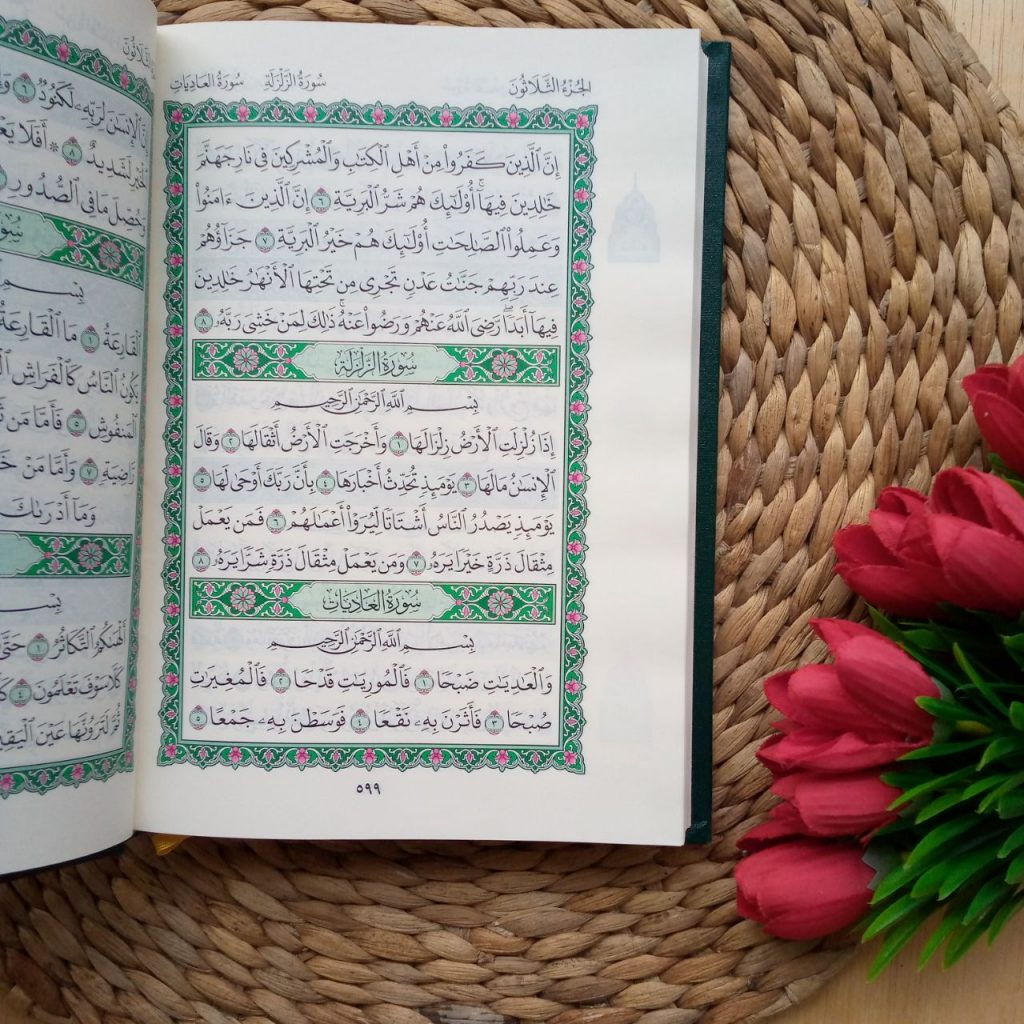 الجُزْءُ الثَّلَاثُونَ سُورَةُ الزَّلْزَلَةِ سُورَةُ العَادِيَاتِ
إِنَّ ٱلَّذِينَ كَفَرُواْ مِنْ أَهْلِ ٱلْكِتَٰبِ وَٱلْمُشْرِكِينَ فِى نَارِ جَهَنَّمَ
خَٰلِدِينَ فِيهَآۚ أُوْلَٰٓئِكَ هُمْ شَرُّ ٱلْبَرِيَّةِ ٦ إِنَّ ٱلَّذِينَ ءَامَنُواْ
وَعَمِلُواْ ٱلصَّٰلِحَٰتِ أُوْلَٰٓئِكَ هُمْ خَيْرُ ٱلْبَرِيَّةِ ٧ جَزَآؤُهُمْ
عِندَ رَبِّهِمْ جَنَّٰتُ عَدْنٍ تَجْرِى مِن تَحْتِهَا ٱلْأَنْهَٰرُ خَٰلِدِينَ
فِيهَآ أَبَدًاۖ رَّضِىَ ٱللَّهُ عَنْهُمْ وَرَضُواْ عَنْهُۚ ذَٰلِكَ لِمَنْ خَشِىَ رَبَّهُۥ ٨
سُورَةُ الزَّلْزَلَةِ
بِسْمِ ٱللَّهِ ٱلرَّحْمَٰنِ ٱلرَّحِيمِ
إِذَا زُلْزِلَتِ ٱلْأَرْضُ زِلْزَالَهَا ١ وَأَخْرَجَتِ ٱلْأَرْضُ أَثْقَالَهَا ٢ وَقَالَ
ٱلْإِنسَٰنُ مَا لَهَا ٣ يَوْمَئِذٍ تُحَدِّثُ أَخْبَارَهَا ٤ بِأَنَّ رَبَّكَ أَوْحَىٰ لَهَا ٥
يَوْمَئِذٍ يَصْدُرُ ٱلنَّاسُ أَشْتَاتًا لِّيُرَوْاْ أَعْمَٰلَهُمْ ٦ فَمَن يَعْمَلْ
مِثْقَالَ ذَرَّةٍ خَيْرًا يَرَهُۥ ٧ وَمَن يَعْمَلْ مِثْقَالَ ذَرَّةٍ شَرًّا يَرَهُۥ ٨
سُورَةُ العَادِيَاتِ
بِسْمِ ٱللَّهِ ٱلرَّحْمَٰنِ ٱلرَّحِيمِ
وَٱلْعَٰدِيَٰتِ ضَبْحًا ١ فَٱلْمُورِيَٰتِ قَدْحًا ٢ فَٱلْمُغِيرَٰتِ
صُبْحًا ٣ فَأَثَرْنَ بِهِۦ نَقْعًا ٤ فَوَسَطْنَ بِهِۦ جَمْعًا ٥
٥٩٩
ٱلْإِنسَٰنَ لِرَبِّهِۦ لَكَنُودٌ ٦
لَشَدِيدٌ ٨ ۞ أَفَلَا
مَا فِى ٱلصُّدُورِ
بِسْمِ
ٱلْقَارِعَةُ ١ مَا ٱلْقَارِعَةُ
يَكُونُ ٱلنَّاسُ كَٱلْفَرَاشِ
ٱلْمَنفُوشِ ٥ فَأَمَّا مَن
رَّاضِيَةٍ ٧ وَأَمَّا مَنْ
وَمَآ أَدْرَىٰكَ
بِسْمِ
أَلْهَىٰكُمُ ٱلتَّكَاثُرُ ١ حَتَّىٰ
كَلَّا سَوْفَ تَعْلَمُونَ ٤
ثُمَّ لَتَرَوُنَّهَا عَيْنَ ٱلْيَقِينِ